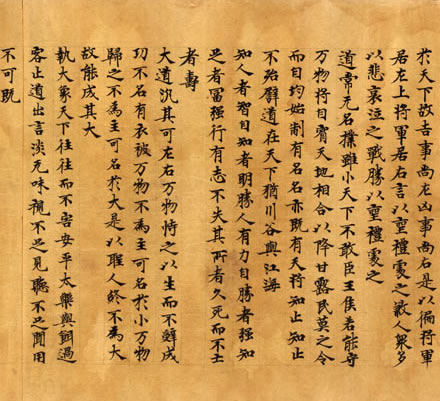 於天下故吉事尚左凶事尚右是以偏將軍
居左上將軍居右言以喪禮處之煞人衆多
以悲哀泣之戰勝以喪禮處之
道常无名樸雖小天下不敢臣王侯若能守
万物將自賓天地相合以降甘露民莫之令
而自均始制有名名亦既有天將知止知止
不殆譬道在天下猶川谷與江海
知人者智自知者明勝人有力自勝者强知
足者冨强行有志不失其所者久死而不亡
者壽
大道汎其可左右万物恃之以生而不辭成
功不名有衣被万物不為主可名於小万物
歸之不為主可名於大是以聖人終不為大
故能成其大
執大象天下往往而不害安平太樂與餌過
客止道出言淡无味視不足見聽不足聞用
不可既